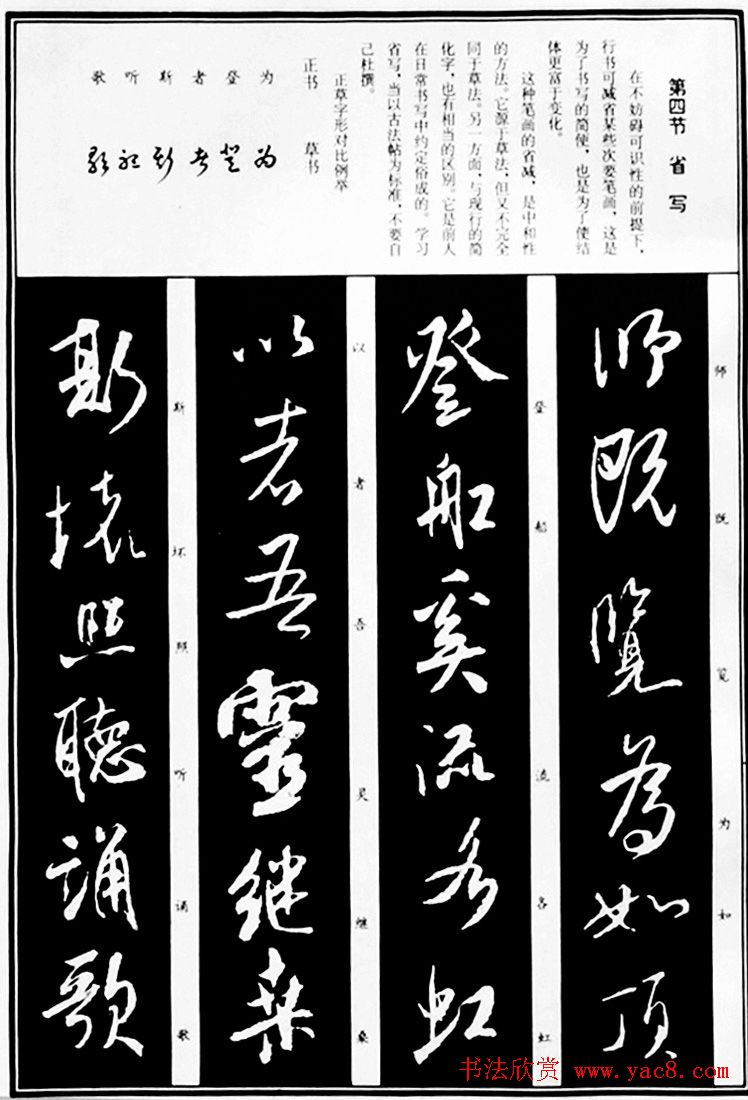 第四节 省 写
在不妨碍可识性的前提下,
行书可减省某些次要笔画,这是
为了书写的简便,也是为了使结
体更富于变化。
这种笔画的省减,是中和性
的方法。它源于草法,但又不完全
同于草法。另一方面,与现行的简
化字,也有相当的区别。它是前人
在日常书写中约定俗成的。学习
省写,当以古法帖为标准,不要自
己杜撰。
正草字形对比例举
正书 草书
为 为
登 登
者 者
斯 斯
听 听
歌 歌
师 既 览 为 如
师既覽為如頂
登 船 流 各 虹
登船奚流各虹
以 者 吾 灵 继 桑
以者吾靈继桑
斯 坏 照 听 诵 歌
斯壞照聽誦歌
书法欣赏 www.yac8.com